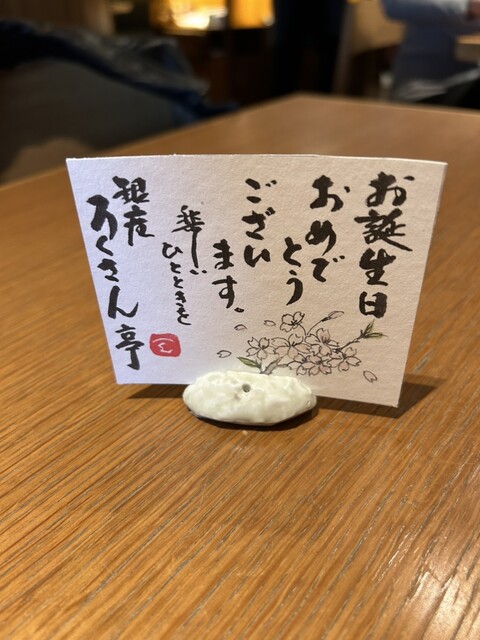 お誕生日
おめでとう
ござい
ます。
楽しい
ひとときを
銀座
ろくさん亭